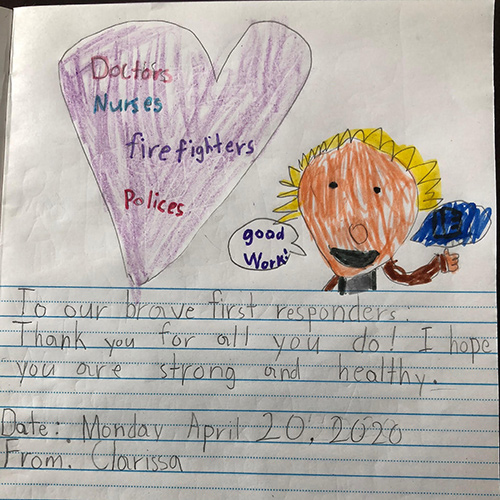 Doctors
Nurses
firefighters
Polices
good
Work!
To our brave first responders.
Thank you for all you do! I hope
you are strong and healthy.
Date: Monday April 20, 2020
From. Clarissa